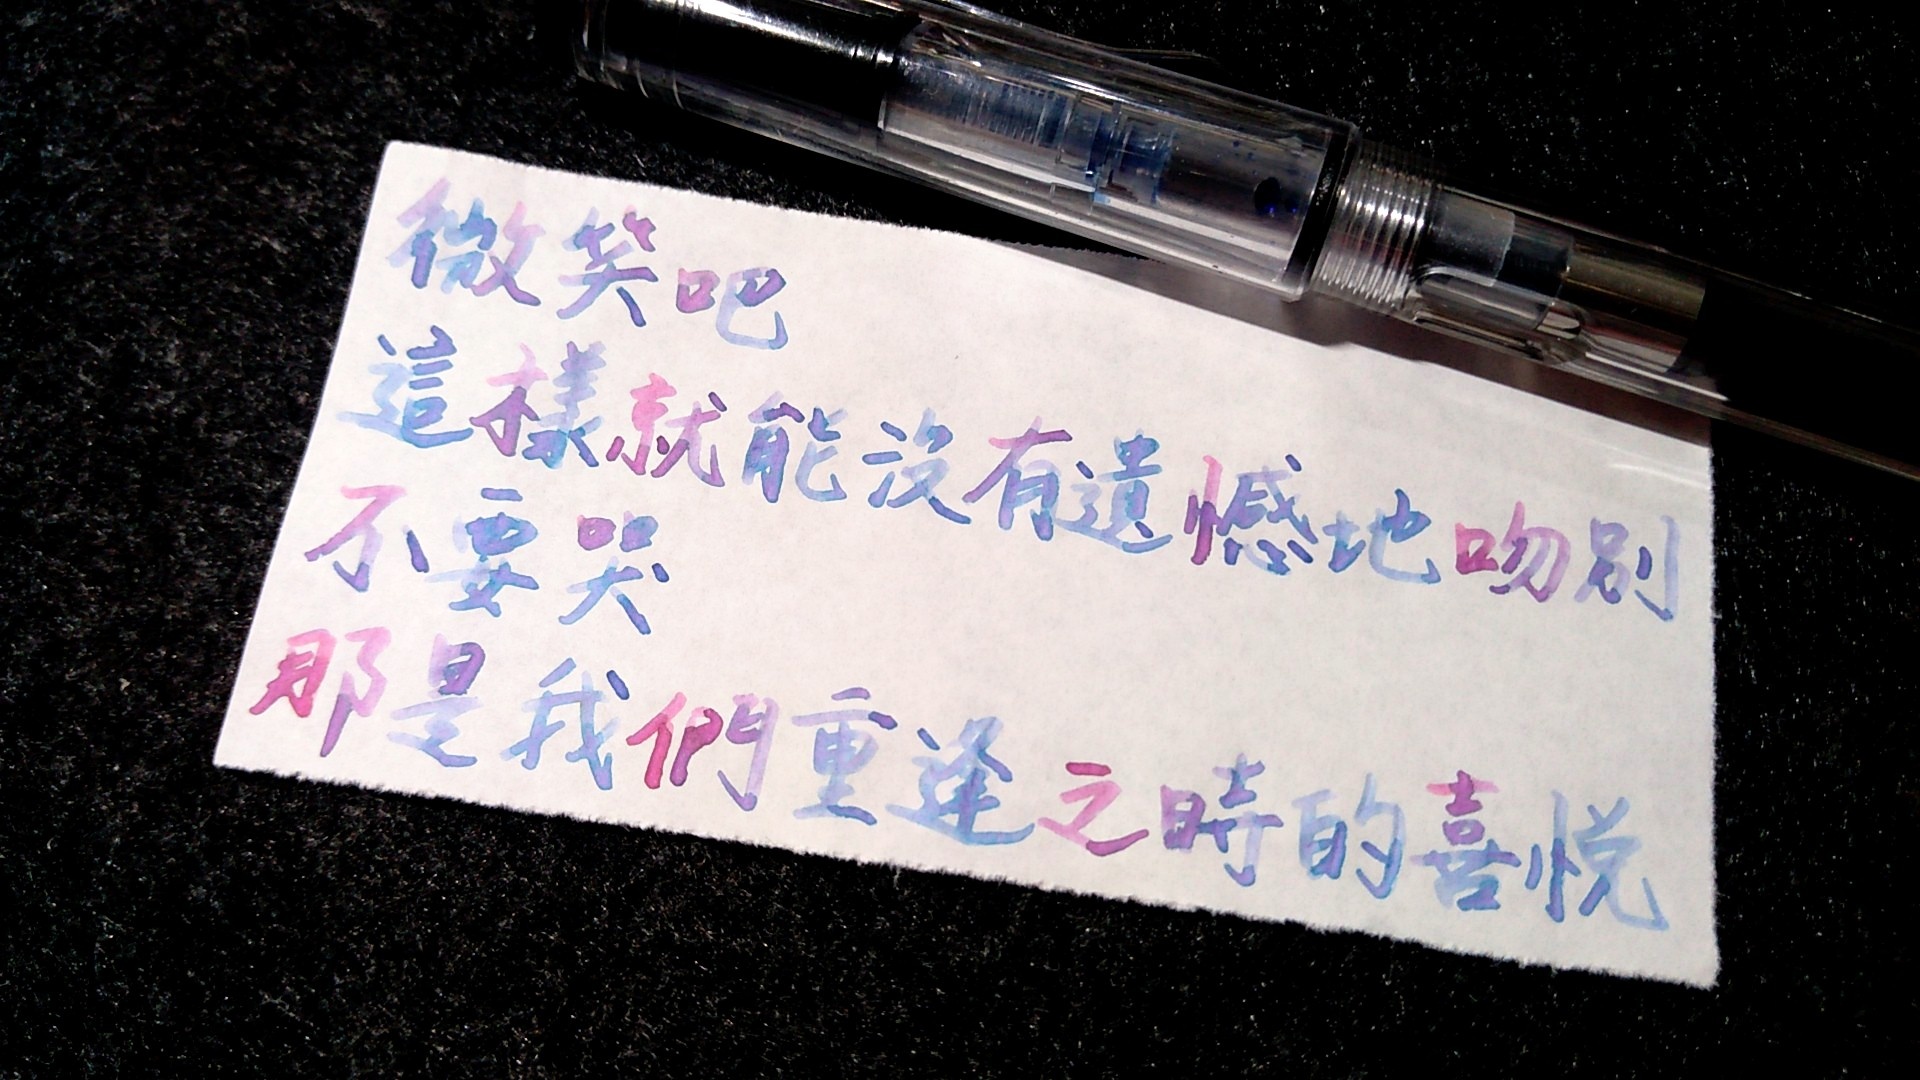 微笑吧
這樣就能沒有遺憾地吻別
不要哭
那是我們重逢之時的喜悅